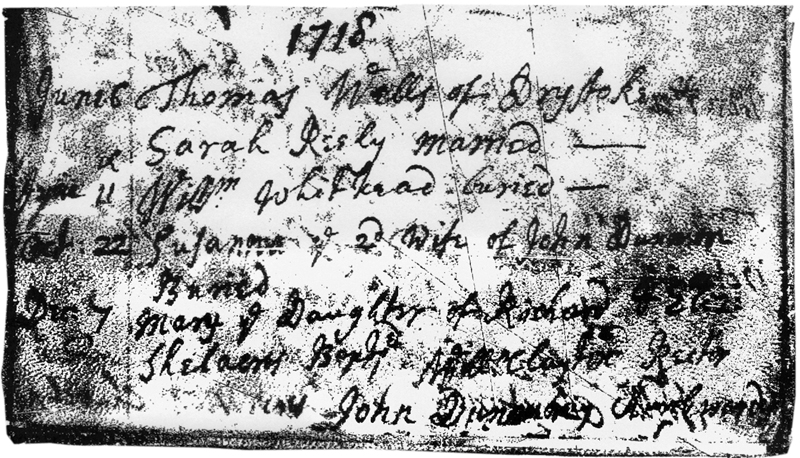 1718
June 6 Thomas Wells of Drystoke &
Sarah Reely married
June 11 Willm Whithead buried
Oct. 22 Susanna ye 2d Wife of John Dunmon
Buried
Dec 7 Mary ye Daughter of Richard
Bapt Rectr
John